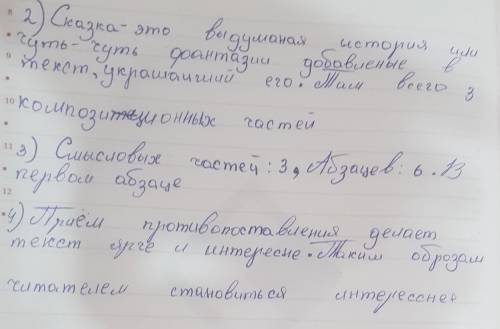 2) Сказка - это выдуманая история или
чуть-чуть фоантазии добавленые в
текст, украшаиций его. Там всего 3
композиционных частей
3) Смысловых частей: 3, Абзацев: 6. В
первом абзаце
4) Приём противопоставления делает
текст ярге и интересне. Таким оброзам
читателем становиться интересснее